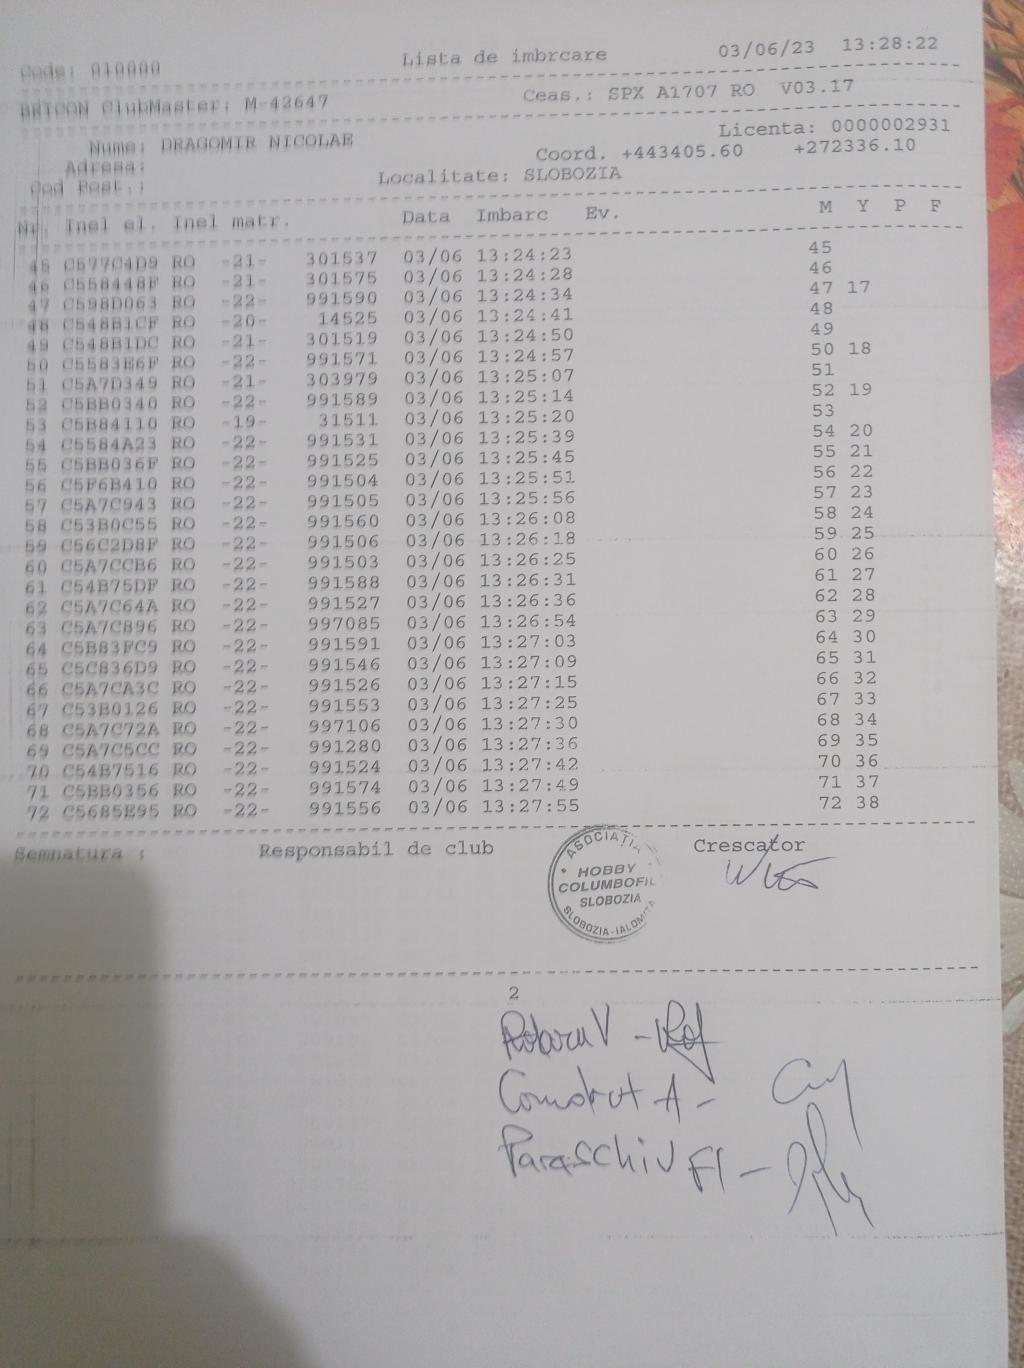 Code: 010000 Lista de imbrcare 03/06/23 13:28:22
BRICON ClubMaster: M-42647 Ceas.: SPX A1707 RO V03.17
Nume: DRAGOMIR NICOLAE Licenta: 0000002931
Adresa: Coord. +443405.60 +272336.10
Cod Post.: Localitate: SLOBOZIA
Nr. Inel el. Inel matr. Data Imbarc Ev. M Y P F
45 C577C4D9 RO -21- 301537 03/06 13:24:23 45
46 C558448F RO -21- 301575 03/06 13:24:28 46
47 C598D063 RO -22- 991590 03/06 13:24:34 47 17
48 C548B1CF RO -20- 14525 03/06 13:24:41 48
49 C548B1DC RO -21- 301519 03/06 13:24:50 49
50 C5583E6F RO -22- 991571 03/06 13:24:57 50 18
51 C5A7D349 RO -21- 303979 03/06 13:25:07 51
52 C5BB0340 RO -22- 991589 03/06 13:25:14 52 19
53 C5B84110 RO -19- 31511 03/06 13:25:20 53
54 C5584A23 RO -22- 991531 03/06 13:25:39 54 20
55 C5BB036F RO -22- 991525 03/06 13:25:45 55 21
56 C5F6B410 RO -22- 991504 03/06 13:25:51 56 22
57 C5A7C943 RO -22- 991505 03/06 13:25:56 57 23
58 C53B0C55 RO -22- 991560 03/06 13:26:08 58 24
59 C56C2D8F RO -22- 991506 03/06 13:26:18 59 25
60 C5A7CCB6 RO -22- 991503 03/06 13:26:25 60 26
61 C54B75DF RO -22- 991588 03/06 13:26:31 61 27
62 C5A7C64A RO -22- 991527 03/06 13:26:36 62 28
63 C5A7C896 RO -22- 997085 03/06 13:26:54 63 29
64 C5B83FC9 RO -22- 991591 03/06 13:27:03 64 30
65 C5C836D9 RO -22- 991546 03/06 13:27:09 65 31
66 C5A7CA3C RO -22- 991526 03/06 13:27:15 66 32
67 C53B0126 RO -22- 991553 03/06 13:27:25 67 33
68 C5A7C72A RO -22- 997106 03/06 13:27:30 68 34
69 C5A7C5CC RO -22- 991280 03/06 13:27:36 69 35
70 C54B7516 RO -22- 991524 03/06 13:27:42 70 36
71 C5BB0356 RO -22- 991574 03/06 13:27:49 71 37
72 C5685E95 RO -22- 991556 03/06 13:27:55 72 38
Semnatura : Responsabil de club Crescator
ASOCIAȚIA
HOBBY
COLUMBOFIL
SLOBOZIA
SLOBOZIA-IALOMIȚA
2
V -
A -
Paraschiv Fl -